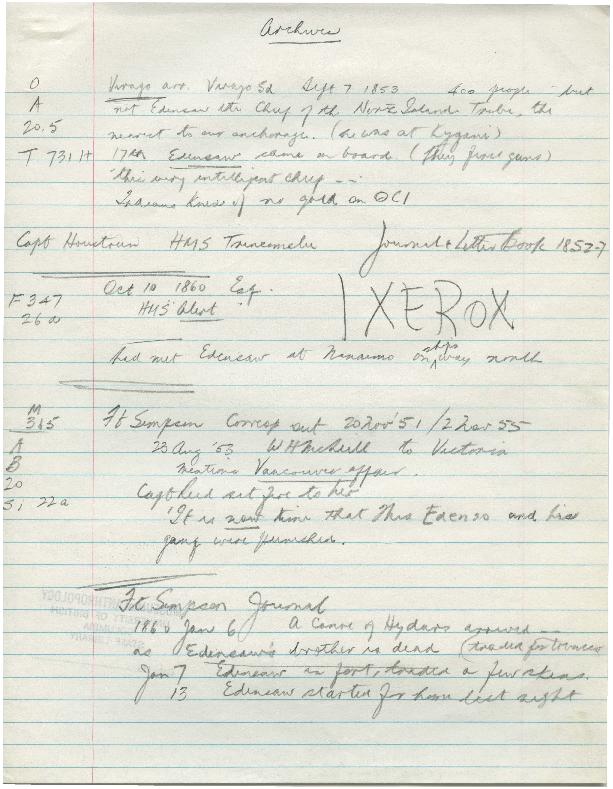 Archives
O Virago arr. Virago Sd Sept 7 1853 400 people but
A met Edensaw the Chief of the North Island Tribe, the
20.5 nearest to our anchorage. (he was at Kygani)
T 731 H 17th Edensaw came on board. (they fired guns)
this very intelligent chief - -
Indians knew of no gold on QCI
Capt Houstoun HMS Trincomalee Journal & Letter Book 1852-7
F 347 Oct 10 1860 Esq.
26a HMS Alert
1 XEROX
had met Edensaw at Nanaimo on ships way north
M
315 Ft Simpson Corresp out 20 Nov '51 / 2 Nov 55
A 23 Aug '53 WH McNeill to Victoria
B mentions Vancouver affair.
20 Capt Reid set fire to her
Si 22a 'It is now time that this Edenso and his
gang were punished.
Ft Simpson Journal
1860 Jan 6 A Canoe of Hydars arrived - -
as Edensaw's brother is dead (traded for tobacco
Jan 7 Edensaw in fort, traded a few skins.
13 Edensaw started for home last night